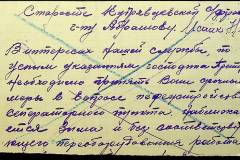 Старосте Кутрявцевской
с-ну Абрамову.
В интересах нашей службы, по
указаниям господина
Необходимо принять Вам срочные
меры в вопросе переустройства
сепараторного пункта приближа-
ется Зима и без соответству-
ющего переоборудования работа